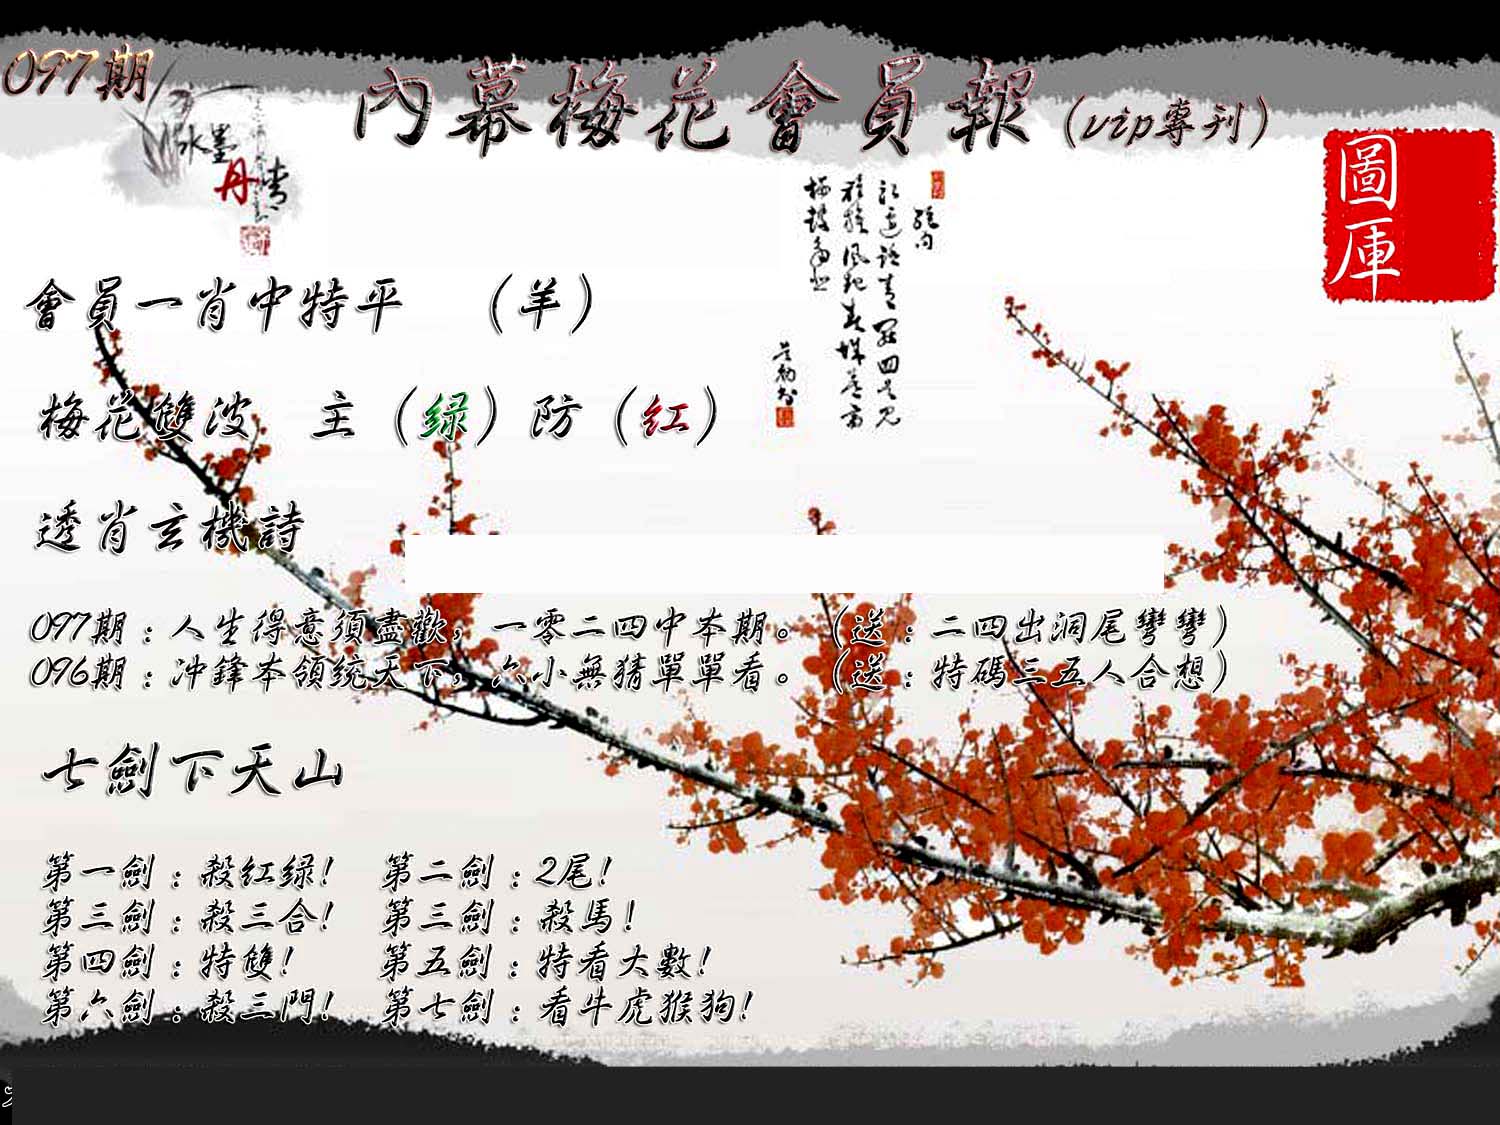 097期
內幕梅花會員報(vip專刊)
水墨
丹情
圖庫
會員一肖中特平 (羊)
梅花雙波 主(绿)防(红)
透肖玄機詩
097期:人生得意須盡歡,一零二四中本期。(送:二四出洞尾彎彎)
096期:冲鋒本領统天下,六小無猜單單看。(送:特碼三五人合想)
七劍下天山
第一劍:殺红绿! 第二劍:2尾!
第三劍:殺三合! 第三劍:殺馬!
第四劍:特雙! 第五劍:特看大數!
第六劍:殺三門! 第七劍:看牛虎猴狗!